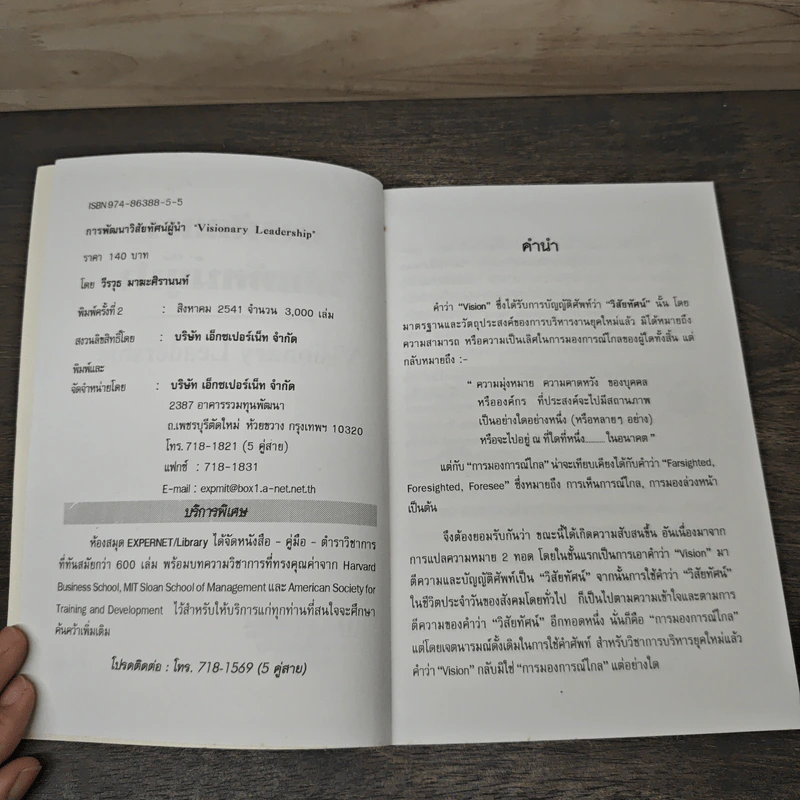 ISBN 974-86388-5-5
การพัฒนาวิสัยทัศน์ผู้นำ "Visionary Leadership"
ราคา 140 บาท
โดย วีรวุธ มาฆะศิรานนท์
พิมพ์ครั้งที่ 2 : สิงหาคม 2541 จำนวน 3,000 เล่ม
สงวนลิขสิทธิ์โดย : บริษัท เอ็กซเปอร์เน็ท จำกัด
พิมพ์และ
จัดจำหน่ายโดย : บริษัท เอ็กซเปอร์เน็ท จำกัด
2387 อาคารรวมทุนพัฒนา
ถ.เพชรบุรีตัดใหม่ ห้วยขวาง กรุงเทพฯ 10320
โทร. 718-1821 (5 คู่สาย)
แฟกซ์ : 718-1831
E-mail : expmit@box1.a-net.net.th
บริการพิเศษ
ห้องสมุด EXPERNET/Library ได้จัดหนังสือ - คู่มือ - ตำราวิชาการ
ที่ทันสมัยกว่า 600 เล่ม พร้อมบทความวิชาการที่ทรงคุณค่าจาก Harvard
Business School, MIT Sloan School of Management และ American Society for
Training and Development ไว้สำหรับให้บริการแก่ทุกท่านที่สนใจจะศึกษา
ค้นคว้าเพิ่มเติม
โปรดติดต่อ : โทร. 718-1569 (5 คู่สาย)
คำนำ
คำว่า "Vision" ซึ่งได้รับการบัญญัติศัพท์ว่า "วิสัยทัศน์" นั้น โดย
มาตรฐานและวัตถุประสงค์ของการบริหารงานยุคใหม่แล้ว มิได้หมายถึง
ความสามารถ หรือความเป็นเลิศในการมองการณ์ไกลของผู้ใดทั้งสิ้น แต่
กลับหมายถึง :-
" ความมุ่งหมาย ความคาดหวัง ของบุคคล
หรือองค์กร ที่ประสงค์จะไปมีสถานภาพ
เป็นอย่างใดอย่างหนึ่ง (หรือหลายๆ อย่าง)
หรือจะไปอยู่ ณ ที่ใดที่หนึ่ง.........ในอนาคต "
แต่กับ "การมองการณ์ไกล" น่าจะเทียบเคียงได้กับคำว่า "Farsighted,
Foresighted, Foresee" ซึ่งหมายถึง การเห็นการณ์ไกล, การมองล่วงหน้า
เป็นต้น
จึงต้องยอมรับกันว่า ขณะนี้ได้เกิดความสับสนขึ้น อันเนื่องมาจาก
การแปลความหมาย 2 ทอด โดยในชั้นแรกเป็นการเอาคำว่า "Vision" มา
ตีความและบัญญัติศัพท์เป็น "วิสัยทัศน์" จากนั้นการใช้คำว่า "วิสัยทัศน์"
ในชีวิตประจำวันของสังคมโดยทั่วไป ก็เป็นไปตามความเข้าใจและตามการ
ตีความของคำว่า "วิสัยทัศน์" อีกทอดหนึ่ง นั่นก็คือ "การมองการณ์ไกล"
แต่โดยเจตนารมณ์ดั้งเดิมในการใช้คำศัพท์ สำหรับวิชาการบริหารยุคใหม่แล้ว
คำว่า "Vision" กลับมิใช่ "การมองการณ์ไกล" แต่อย่างใด